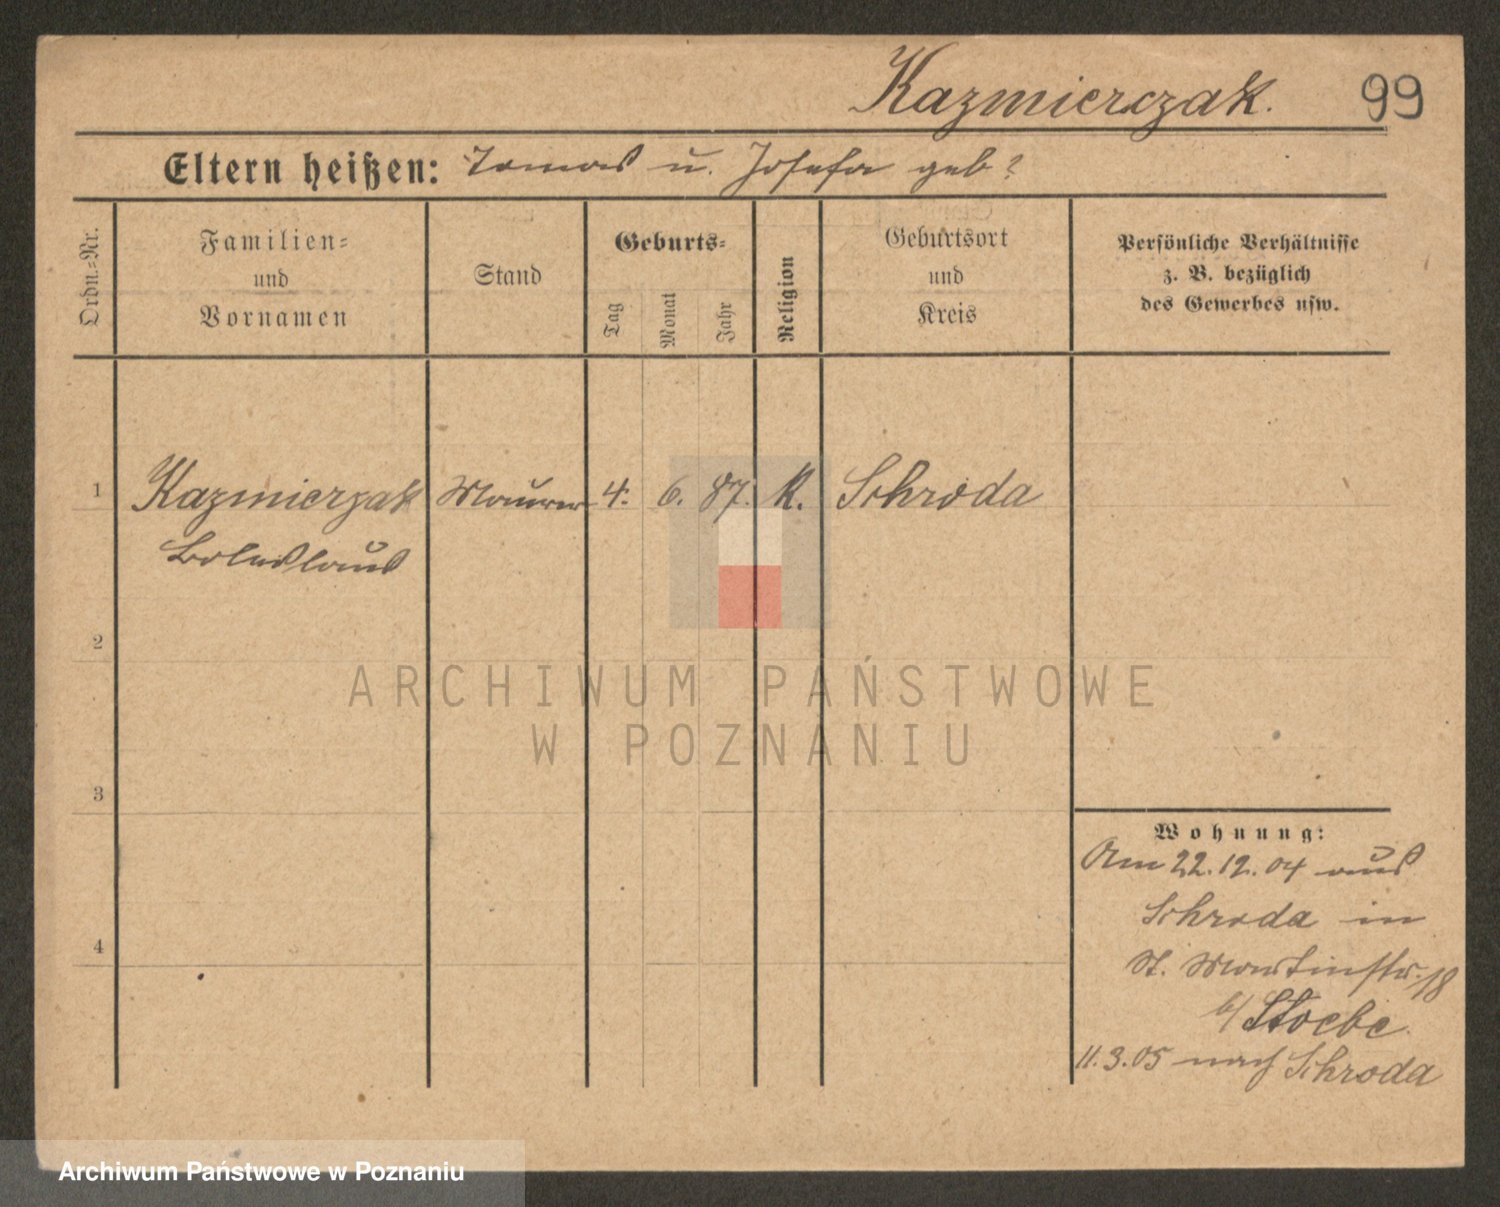 Kazmierczak. 99
Eltern heißen: Tomas u. Josefa geb?
Ordn.-Nr.
Familien-
und
Vornamen
Stand
Geburts-
Tag
Monat
Jahr
Religion
Geburtsort
und
Kreis
Persönliche Verhältnisse
z. B. bezüglich
des Gewerbes usw.
1 Kazmierzak Maurer 4. 6. 87. K. Schroda
Boleslaus
2
ARCHIWUM PAŃSTWOWE
W POZNANIU
3
Wohnung:
Am 22.12.04 aus
Schroda in
St. Martinstr. 18
b/ Stoebe.
4
11.3.05 nach Schroda
Archiwum Państwowe w Poznaniu